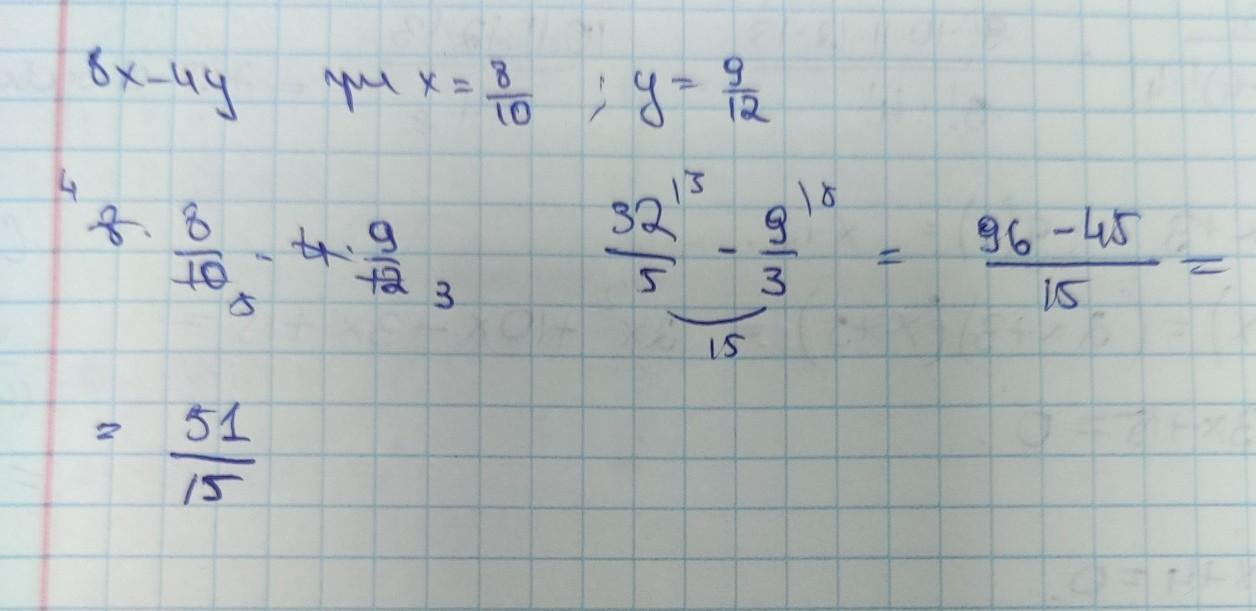 8x-4y при x = 8/10 ; y = 9/12
4 8 · 8/10 5 - 4 · 9/12 3 32/5 |3 - 9/3 |5 = 96-45/15 =
15
= 51/15